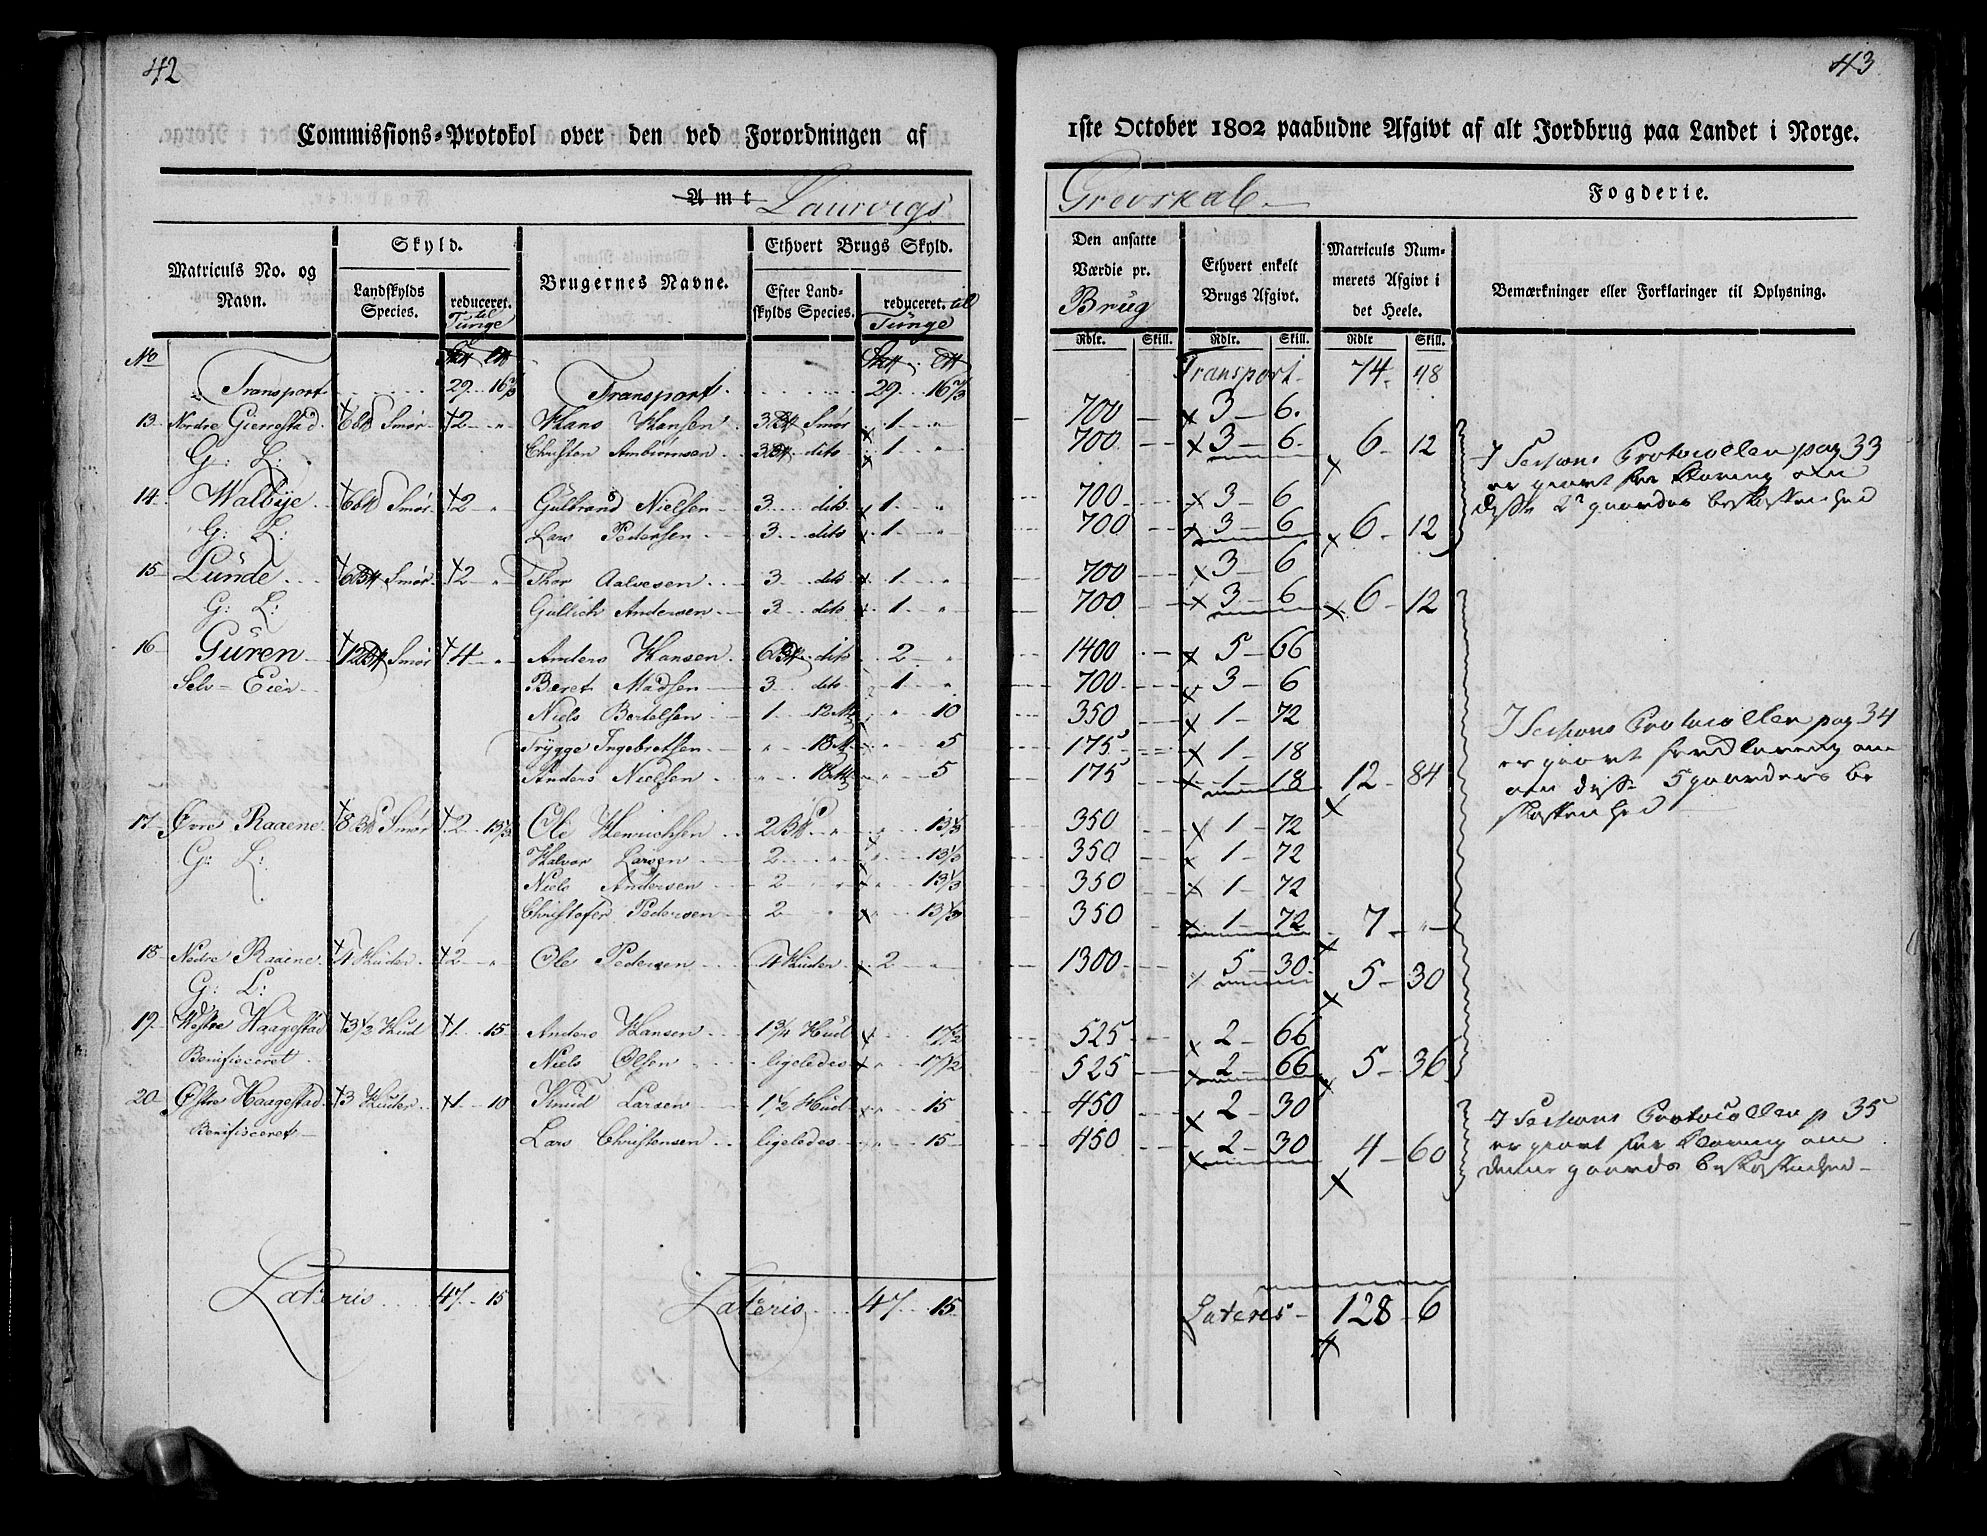 42
Commissions-Protokol over den ved Forordningen af
Amt Laurvigs
Matriculs No. og Navn.
Skyld.
Landskylds Species.
reduceret. til Tunge
Brugernes Navne.
Ethvert Brugs Skyld.
Efter Landskylds Species.
reduceret. til Tünge
No
Transport 29 16 2/3 Transport 29 16 2/3
13. Nordre Gierrestad Smør 2 " Hans Hansen 3 Smør 1 "
G: L: Christen 3 dito 1 "
14. Walbÿe 6 Smør 2 " Gulbrand Nielsen 3 dito 1 "
G: L: Lars Pedersen 3 dito 1 "
15. Lunde 6 Smør 2 " Thor Aalvesen 3 dito 1 "
G: L: Gullich Andersen 3 dito 1 "
16 Guren 12 Smør 4 " Anders Hansen 6 dito 2 "
Selv-Eier Beret Madsen 3 dito 1 "
Niels Bertelsen 1 12 " 10
Trÿgge Ingebretsen " 18 " 5
Anders Nielsen " 18 " 5
17. Øvre Raaene 8 Smør 2 13 1/3 Ole Henrichsen 2 " 13 1/3
G: L: Halvor Larsen 2 " " 13 1/3
Niels Andersen 2 " " 13 1/3
Christofer Pedersen 2 " " 13 1/3
18 Nedre Raaene 4 Huder 2 " Ole Pedersen 4 Huder 2
G: L:
19. Westre Haagestad 3 1/2 Hud 1 15 Anders Hansen 1 3/4 Hud 17 1/2
Benificeret Niels Olsen ligeledes " 17 1/2
20 Østre Haagestad 3 Huder 1 10 Knud Larsen 1 1/2 Hud 15
Benificeret Lars Christensen ligeledes " 15
Lateris 47 15 Lateris 47 15
43
1ste October 1802 paabudne Afgivt af alt Jordbrug paa Landet i Norge.
Grevskab Fogderie.
Den ansatte Værdie pr. Brug
Ethvert enkelt Brugs Afgivt.
Matriculs Nummerets Afgivt i det Heele.
Bemærkninger eller Forklaringer til Oplysning.
Rdlr. Skill. Rdlr. Skill. Rdlr Skill.
Transport 74 48
700 3 6.
700 3 6. 6 12
I Sessions Protocollen pag 33
er giort om
disse 2de gaardes beskaffenhed
700 3 6
700 3 6 6 12
700 3 6
700 3 6 6 12
1400 5 66
700 3 6
350 1 72
175 1 18
175 1 18 12 84
I Sessions Protocollen pag 34
er giort om
disse 5 gaarders be
skaffenhed
350 1 72
350 1 72
350 1 72
350 1 72 7 "
1300 5 30 5 30
525 2 66
525 2 66 5 36
450 2 30
450 2 30 4 60
I Sessions Protocollen p 35
er giort om
denne gaards beskaffenhed
Lateris 128 6